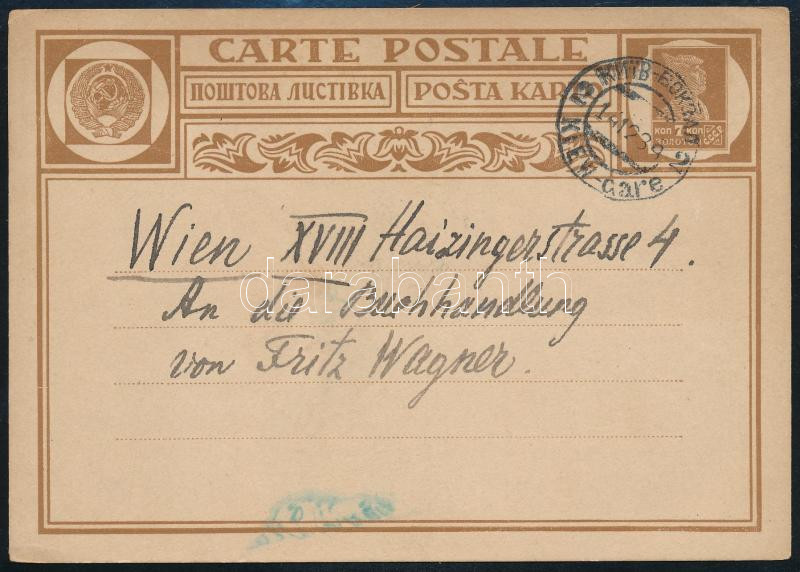 CARTE POSTALE
ПОШТОВА ЛИСТІВКА
POŠTA KAR
КОП 7 КОП
ЗОЛОТОМ
КИЇВ-ВОКЗАЛ
KIEV-Gare
Wien XVIII Haizingerstrasse 4.
darabanth
An die Buchhandlung
von Fritz Wagner.